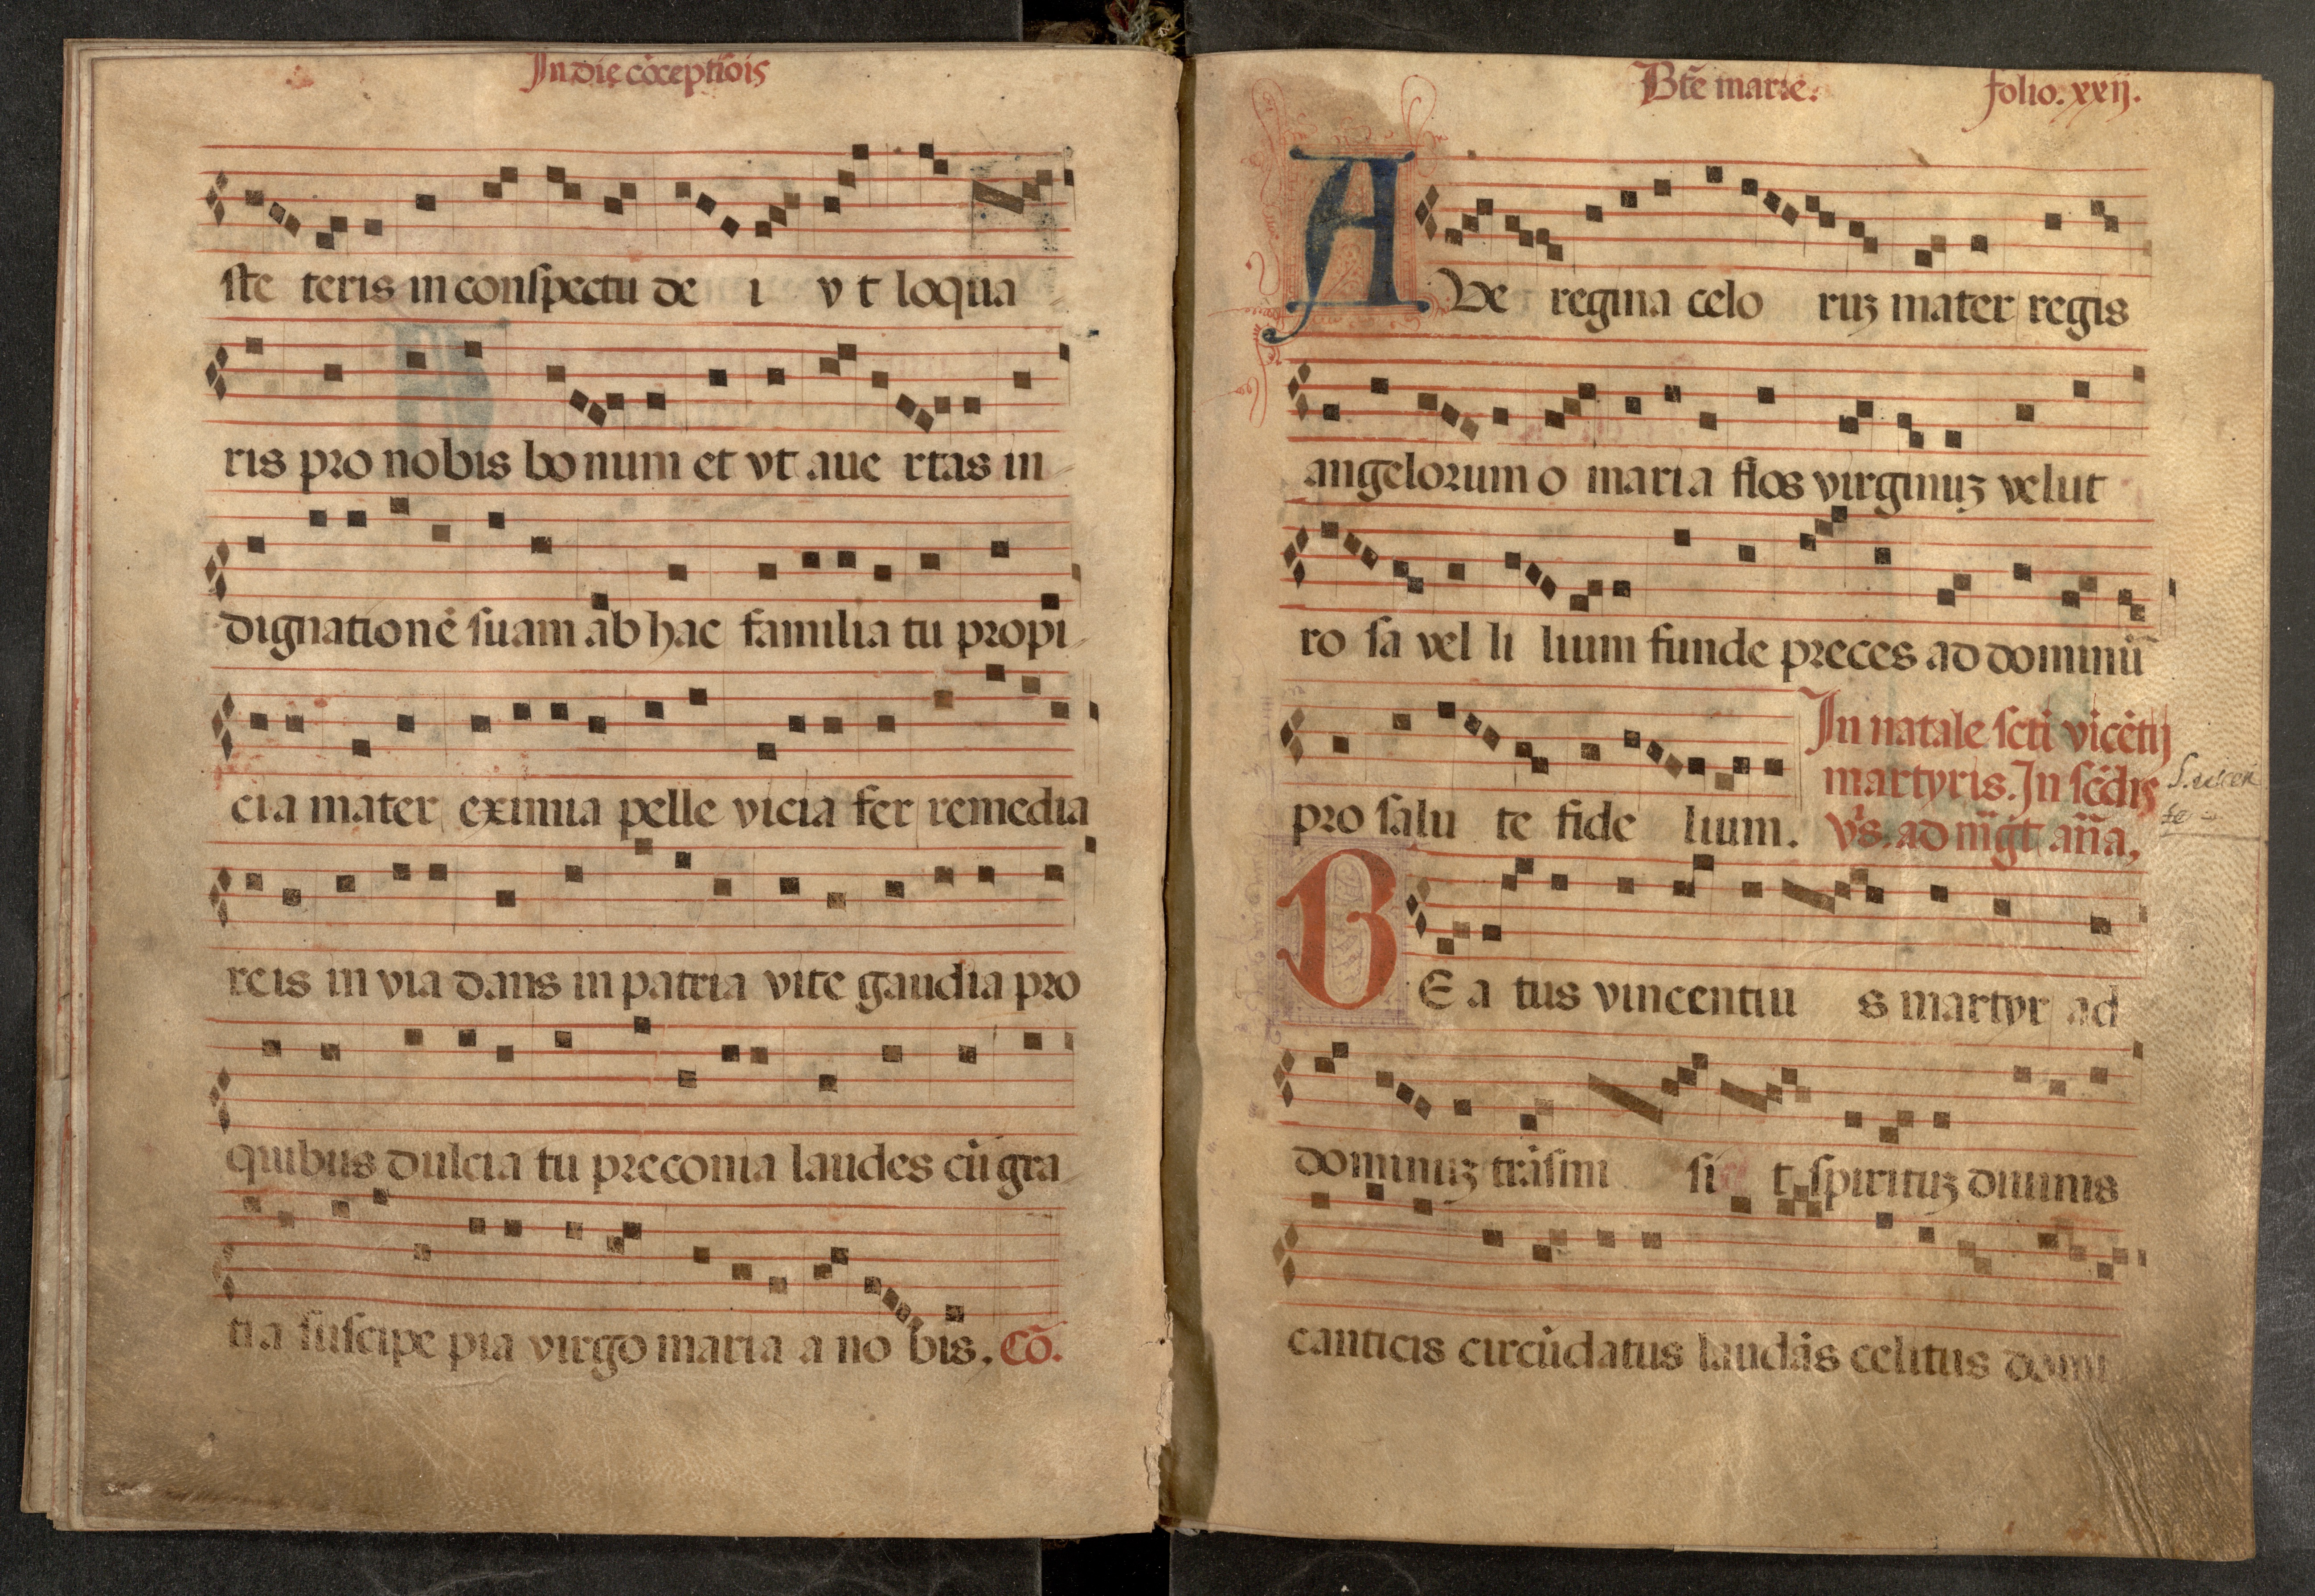 In die cōceptiōis
ste teris in conspectu de i v t loqua
ris pro nobis bonum et vt aue rtas in
dignationē suam ab hac familia tu propi
cia mater eximia pelle vicia fer remedia
reis in via dans in patria vite gaudia pro
quibus dulcia tu preconia laudes cū gra
tia suscipe pia virgo maria a no bis. Cō.
Btē marie. folio. xxij.
A Ve regina celo ruȝ mater regis
angelorum o maria flos virginuȝ velut
ro sa vel li lium funde preces ad dominū
pro salu te fide lium.
In natale sctī vicētij
martyris. In scḋis
vs̄. ad mḡt añā.
B E a tus vincentiu s martyr ad
dominuȝ trāsmi si t spirituȝ diuinis
canticis circūdatus laudās celitus domi